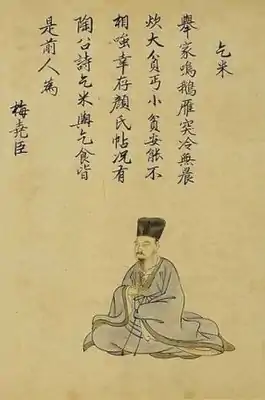 乞米
舉家鳴鵝雁突冷無晨
炊大貧丐小貧安能不
相嗤幸存顏氏帖况有
陶公詩乞米與乞食皆
是前人為
梅堯臣